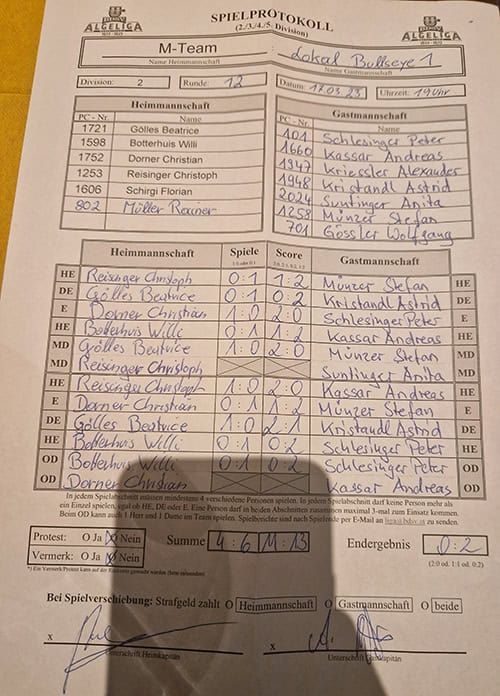 SPIELPROTOKOLL
ALGELIGA (2./3./4./5. Division) ALGELIGA
M-Team : Lokal Bullseye 1
Name Heimmannschaft Name Gastmannschaft
Division: 2 Runde: 12 Datum: 17.03.23 Uhrzeit: 19 Uhr
Heimmannschaft Gastmannschaft
PC - Nr. Name PC - Nr. Name
1721 Gölles Beatrice 101 Schlesinger Peter
1598 Botterhuis Willi 1660 Kassar Andreas
1752 Dorner Christian 1947 Kriessler Alexander
1253 Reisinger Christoph 1948 Kristandl Astrid
1606 Schirgi Florian 2024 Suntinger Anita
802 Müller Rainer 1258 Münzer Stefan
701 Gössler Wolfgang
Heimmannschaft Spiele Score Gastmannschaft
HE Reisinger Christoph 0:1 1:2 Münzer Stefan HE
DE Gölles Beatrice 0:1 0:2 Kristandl Astrid DE
E Dorner Christian 1:0 2:0 Schlesinger Peter E
HE Botterhuis Willi 0:1 1:2 Kassar Andreas HE
MD Gölles Beatrice 1:0 2:0 Münzer Stefan MD
MD Reisinger Christoph Suntinger Anita MD
HE Reisinger Christoph 1:0 2:0 Kassar Andreas HE
E Dorner Christian 0:1 1:2 Münzer Stefan E
DE Gölles Beatrice 1:0 2:1 Kristandl Astrid DE
HE Botterhuis Willi 0:1 0:2 Schlesinger Peter HE
OD Botterhuis Willi 0:1 0:2 Schlesinger Peter OD
OD Dorner Christian Kassar Andreas OD
In jedem Spielabschnitt müssen mindestens 4 verschiedene Personen spielen. In jedem Spielabschnitt darf keine Person mehr als
ein Einzel spielen, egal ob HE, DE oder E. Eine Person darf in beiden Abschnitten zusammen maximal 3-mal zum Einsatz kommen.
Beim OD kann auch 1 Herr und 1 Dame im Team spielen. Spielberichte sind nach Spielende per E-Mail an zu senden.
Protest: O Ja O Nein Summe 4 : 6 11 : 13 Endergebnis 0:2
Vermerk: O Ja O Nein (2:0 od. 1:1 od. 0:2)
Bei Spielverschiebung: Strafgeld zahlt O Heimmannschaft O Gastmannschaft O beide
x x
Unterschrift Heimkapitän Unterschrift Gastkapitän